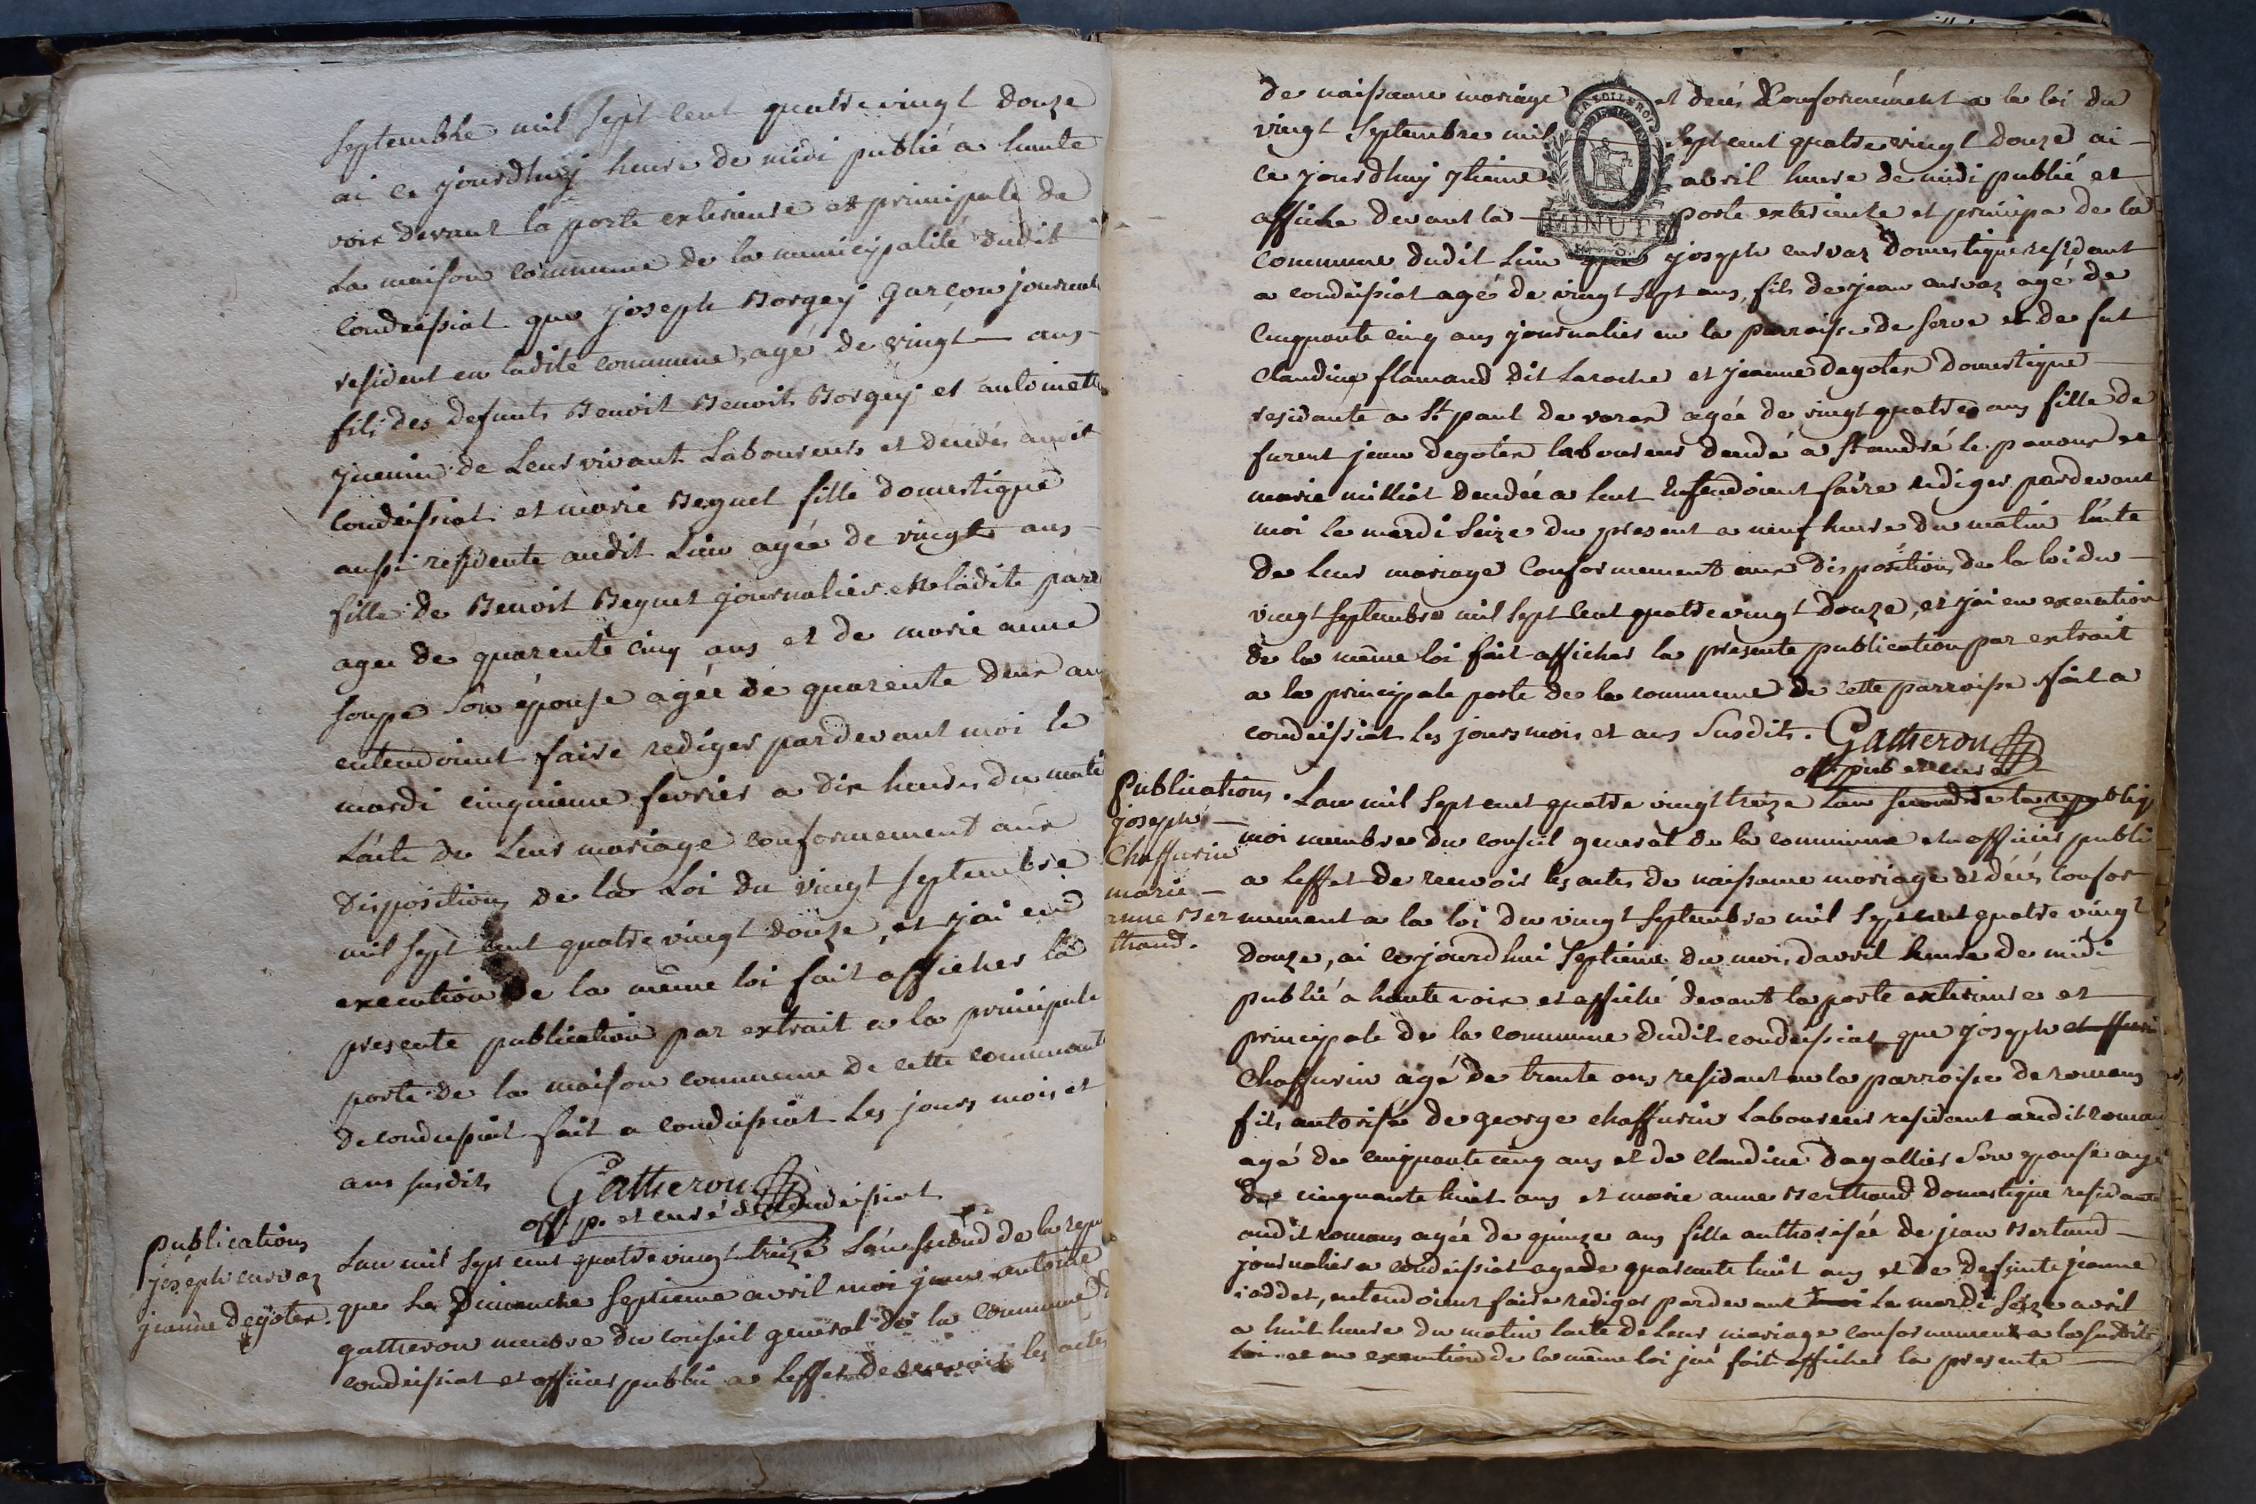 septembre mil sept cent quatre vingt douze
ai ce jourdhuy heure de midi publié a haute
voix devant la porte exterieure et principale de
La maison commune de la municipalité dudit
Condeissiat que joseph Borgey garçon journal
resident en ladite commune, agé de vingt ans
fils des defunts Benoit Benoit Borgey et antoinette
de Leur vivant Laboureurs et decedés audit
Condeissiat et marie Beguet fille domestique
aussi residente audit Lieu agée de vingt ans
fille de Benoit Beguet journalier en ladite parr
agee de quarente cinq ans et de marie anne
soupe Son épouse agée de quarente deux an
entendoient faire rediger pardevant moi le
mardi cinquieme fevrier a dix heures du mati
Lacte de Leur mariage conformement aux
Dispositions de la Loi du vingt septembre
mil sept cent quatre vingt douze, et jai en
execution de la même loi fait afficher la
presente publication par extrait a la principale
porte de la maison commune de cette communauté
de condeissiat fait a condeissiat Les jours mois et
ans susdits Gatheron
off. p. et curé de Condeissiat
publications
joseph curvaz
jeanne degoter.
Lan mil sept cent quatre vingt treize Lan second de la repu
que Le Dimanche septieme avril moi jean antoine
gatheron membre du conseil general de la commune d
condeissiat et officier public a Leffet de recevoir les actes
de naissance mariage et decés Conformément a la loi du
vingt septembre mil sept cent quatre vingt douze ai
ce jourdhuy 7tieme avril heure de midi publié et
affiche devant la porte exterieure et principa de la
commune dudit Lieu que joseph curvaz domestique resident
a condeissiat agé de vingt sept ans, fils de jean curvaz agé de
Cinquante cinq ans journalier en la parroisse de serve et de fut
Claudine flamand dit Laroche et jeanne degoter Domestique
residante a St paul de varax agée de vingt quatre ans fille de
furent jean degoter laboureur decedé a St andré le panoux et
marie milliat decedée a Lent Entendoient faire rediger pardevant
moi le mardi Seize du present a neuf heure du matin Lacte
de leur mariage Conformement aux dispositions de la loi du
vingt septembre mil sept cent quatre vingt douze, et jai en execution
de la même loi fait afficher la presente publication par extrait
a la principale porte de la commune de cette parroisse fait a
condeissiat Les jours mois et ans Susdits. Gatheron
off. pub et curé
LA 20 LLERO
MINUTE
Publications.
joseph
Chaffurin
marie
anne Ber
thaud.
Lan mil sept cent quatre vingt treize Lan second de la republiq
moi membre du conseil general de la commune et officier publi
a leffet de recevoir les actes de naissance mariage et décés Confor
mement a la loi du vingt septembre mil sept cent quatre vingt
Douze, ai cejourdhui septieme du mois davril heure de midi
publié a haute voix et affiché devant la porte exterieure et
principale de la commune dudit condeissiat que joseph chaffuri
Chaffurin agé de trente ans resident en la parroise de romans
fils autorisé de george chaffurin Laboureur resident audit roman
agé de cinquante cinq ans et de Claudine Dagallier Son epouse agé
de cinquante huit ans et marie anne Berthaud domestique residante
audit romans agée de quinze ans fille authorisée de jean Bertaud
journalier a condeissiat agé de quarante huit ans et de defunte jeanne
ioddet, entendoient faire rediger pardevant moi Le mardi Seize avril
a huit heure du matin Lacte de Leur mariage conformement a la susdite
loi et en execution de la même loi jai fait afficher la presente